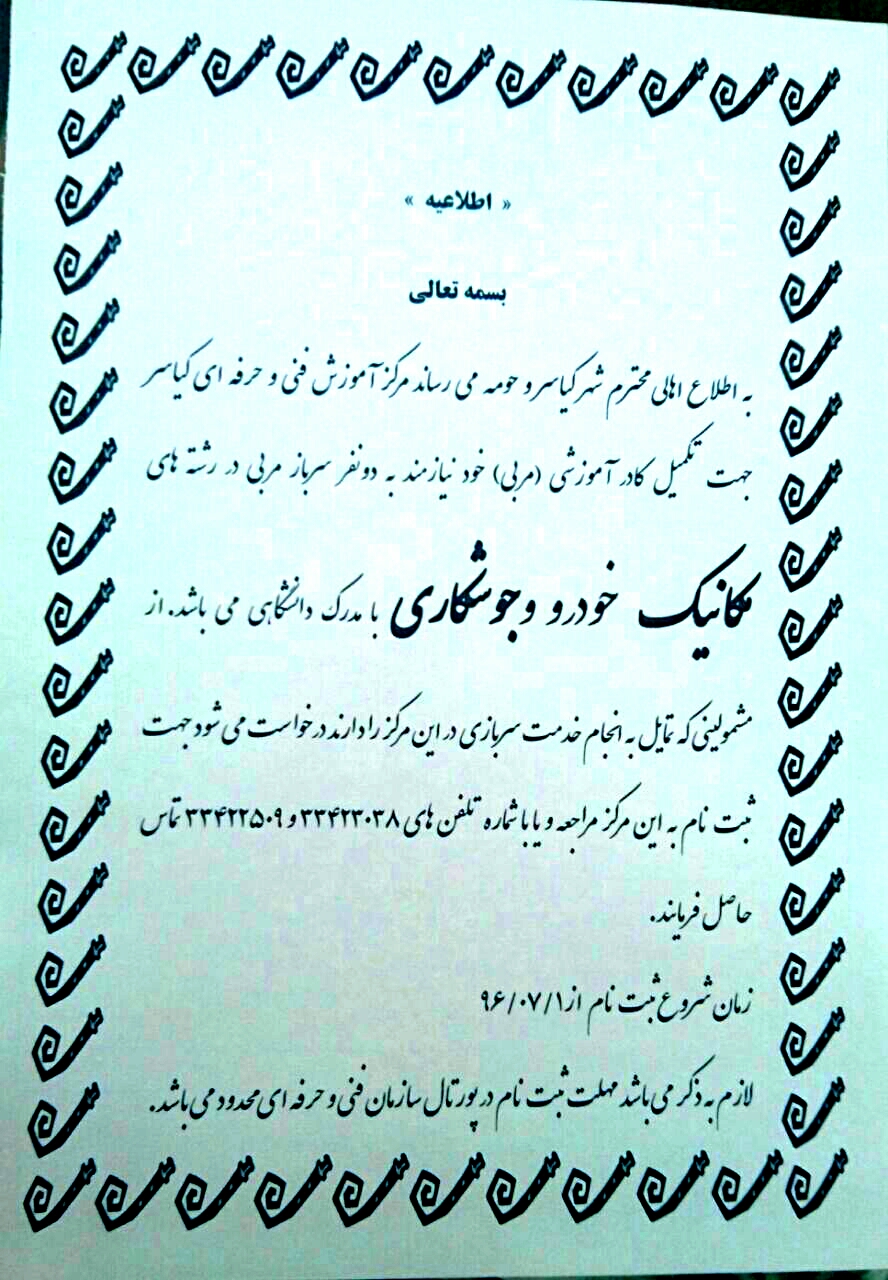 « اطلاعیه »
بسمه تعالی
به اطلاع اهالی محترم شهر کیاسر و حومه می رساند مرکز آموزش فنی و حرفه ای کیاسر
جهت تکمیل کادر آموزشی (مربی) خود نیازمند به دونفر سرباز مربی در رشته های
مکانیک خودرو وجوشکاری با مدرک دانشگاهی می باشد. از
مشمولینی که تمایل به انجام خدمت سربازی در این مرکز را دارند درخواست می شود جهت
ثبت نام به این مرکز مراجعه و یا با شماره تلفن های ۳۳۴۲۳۰۳۸ و ۳۳۴۲۲۵۰۹ تماس
حاصل فرمایند.
زمان شروع ثبت نام از ۹۶/۰۷/۱
لازم به ذکر می باشد مهلت ثبت نام در پورتال سازمان فنی و حرفه ای محدود می باشد.